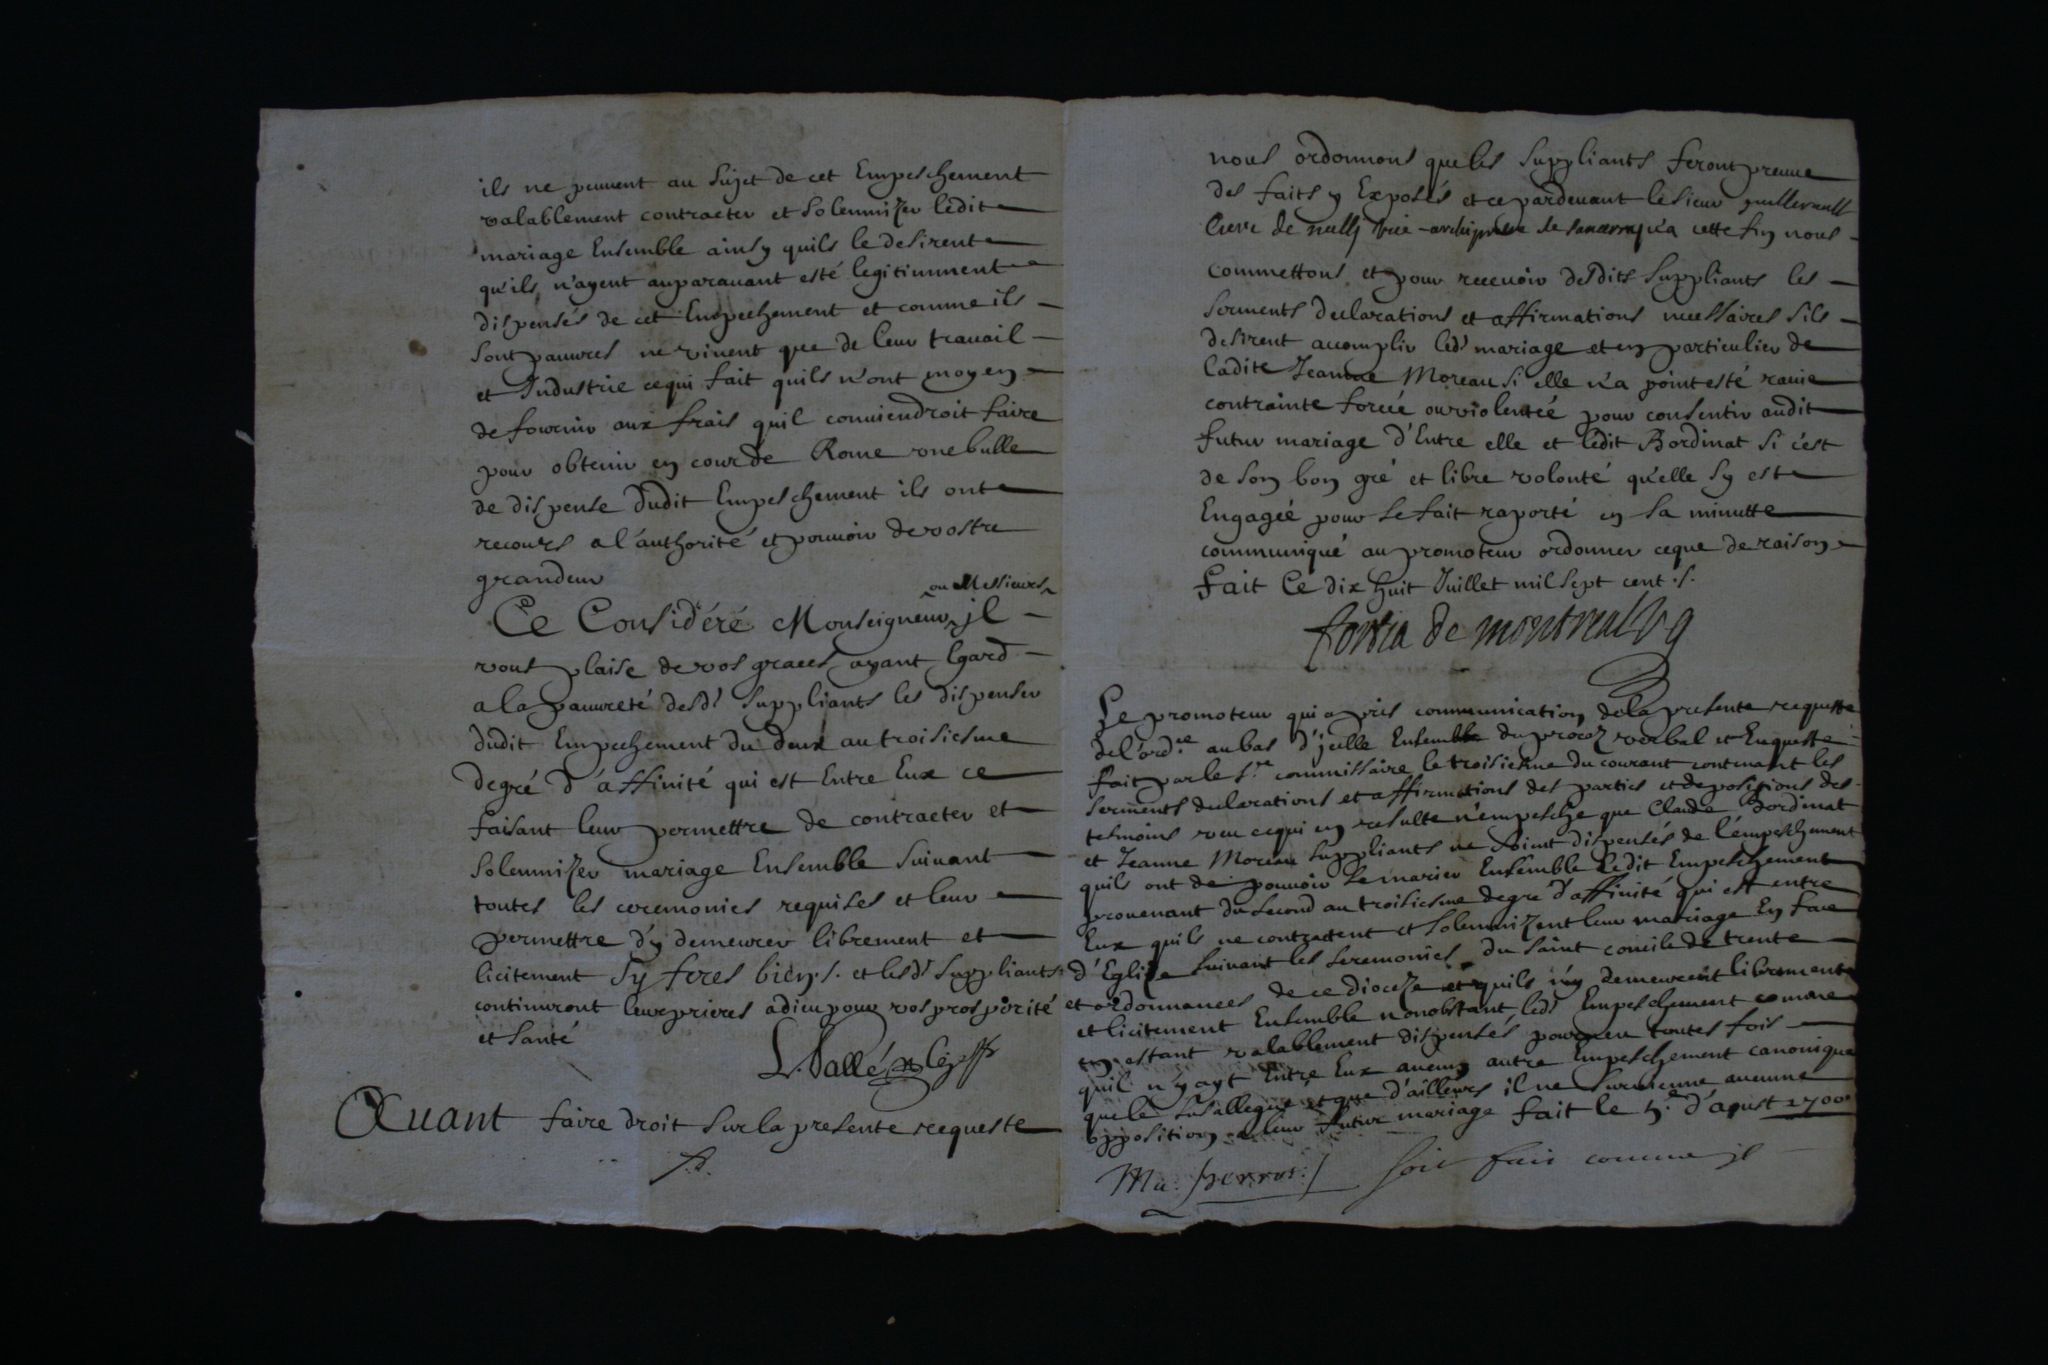 ils ne peuuent au Sujet de cet Empeschement
valablement contracter et Solemnizer ledit
mariage Ensemble ainsy quils le desirent
qu'ils n'ayent auparauant esté legitimment
dispensés de cet Empechement et comme ils
sont pauures ne viuent que de leur trauail
et Industrie ce qui fait quils n'ont moyen
de fournir aux frais quil conuiendroit faire
pour obtenir en cour de Rome vne bulle
de dispense dudit Empeschement ils ont
recours a l'authorité et pouuoir de vostre
grandeur
ou Messieurs
Ce Considéré Monseigneur il
vous plaise de vos graces ayant Egard
a la pauureté desd^s Suppliants les dispenser
dudit Empechement du deux au troisiesme
degré d'affinité qui est Entre Eux ce
faisant leur permettre de contracter et
Solemnizer mariage Ensemble Suiuant
toutes les ceremonies requises et leur
permettre d'y demeurer librement et
licitement Sy feres bien ./. et lesd^s Suppliants
continuront leurs prieres a dieu pour vos prosperité
et Santé
L. Vallée
Auant faire droit Sur la presente requeste
nous ordonnons que les Suppliants feront preuue
des faits y Exposés et ce pardeuant le Sieur guillerault
Curé de archiprestre de a cette fin nous
commettons et pour receuoir desdits Suppliants les
Serments declarations et affirmations necessaires Sils
desirent accomplir led^t mariage et en particulier de
ladite Jeanne Moreau Si elle n'a point esté rauie
contrainte forcée ou violentée pour consentir audit
futur mariage d'Entre elle et ledit Bordinat Si c'est
de Son bon gré et libre volonté qu'elle Sy est
Engagée pour le fait raporté en la minutte
communiqué au promoteur ordonner ce que de raison
Fait Ce dix huit Juillet mil Sept cent ./.
fortia de montreal v g
Le promoteur qui a pris communication de la presente requeste
de l'ord^ce au bas d'jcelle Ensemble du procez verbal et Enqueste
fait par le S^r commissaire le troisiesme du courant contenant les
serments declarations et affirmations des parties et depositions des
tesmoins veu ce qui en resulte n'empesche que Claude Bordinat
et Jeanne Moreau Suppliants ne Soient dispensés de l'empeschement
quils ont de pouuoir Se marier Ensemble ledit Empeschement
prouenant du Second au troisiesme degré d'affinité qui est entre
Eux quils ne contractent et Solemnizent leur mariage En face
d'Eglize Suiuant les Seremonies du Saint concile de trente
et ordonnances de ce dioceze et quils n'y demeurent librement
et licitement Ensemble nonobstant led^t Empeschement comme
en estant valablement dispensés pourueu toutes fois
quil n'y ayt Entre Eux aucun autre Empeschement canonique
que le Susallegué et que d'ailleurs il ne Suruienne aucunne
opposition a leur futur mariage fait le 5^e d'aoust 1700
Soit fait comme il